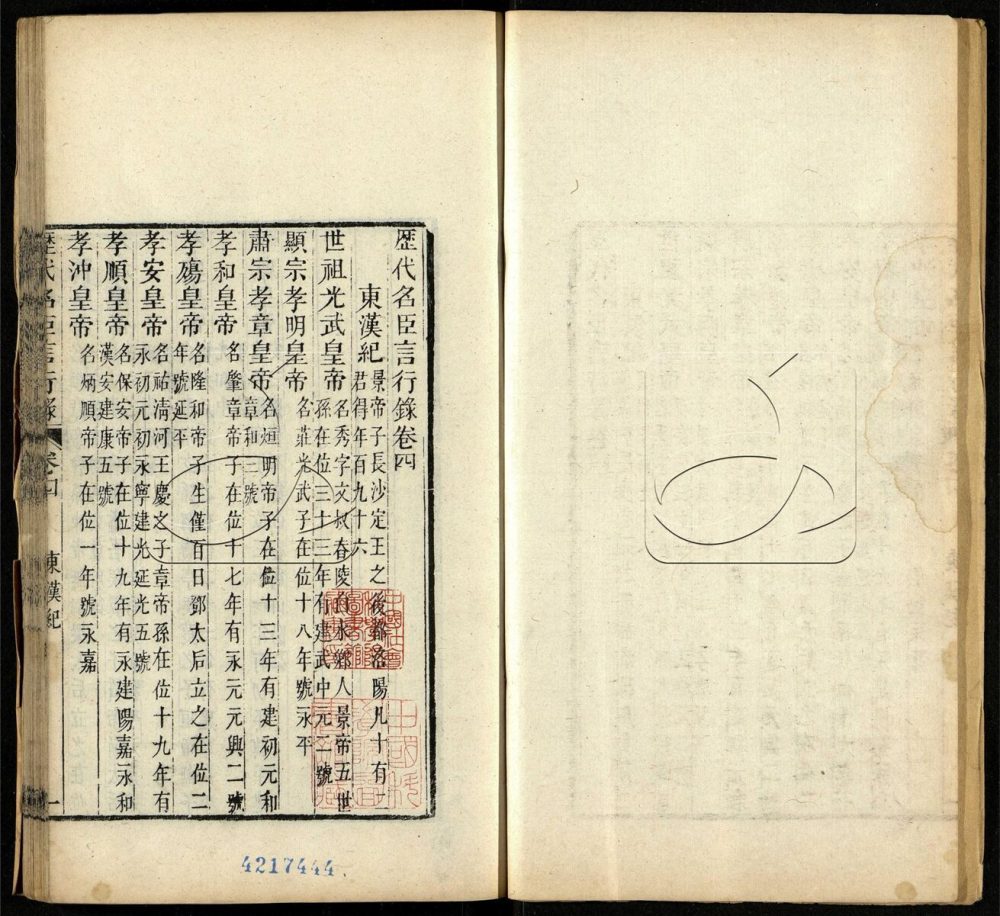 歷代名臣言行錄卷四
東漢紀 景帝子長沙定王之後都洛陽凡十有二
君得年百九十六
世祖光武皇帝 名秀字文叔舂陵白水鄉人景帝五世
孫在位三十三年有建武中元二號
顯宗孝明皇帝 名莊光武子在位十八年號永平
肅宗孝章皇帝 名烜明帝子在位十三年有建初元和
章和三號
孝和皇帝 名肇章帝子在位十七年有永元元興二號
孝殤皇帝 名隆和帝子生僅百日鄧太后立之在位二
年號延平
孝安皇帝 名祜清河王慶之子章帝孫在位十九年有
永初元初永寧建光延光五號
孝順皇帝 名保安帝子在位十九年有永建陽嘉永和
漢安建康五號
孝沖皇帝 名炳順帝子在位一年號永嘉
歷代名臣言行錄 卷四 東漢紀 一
4217444